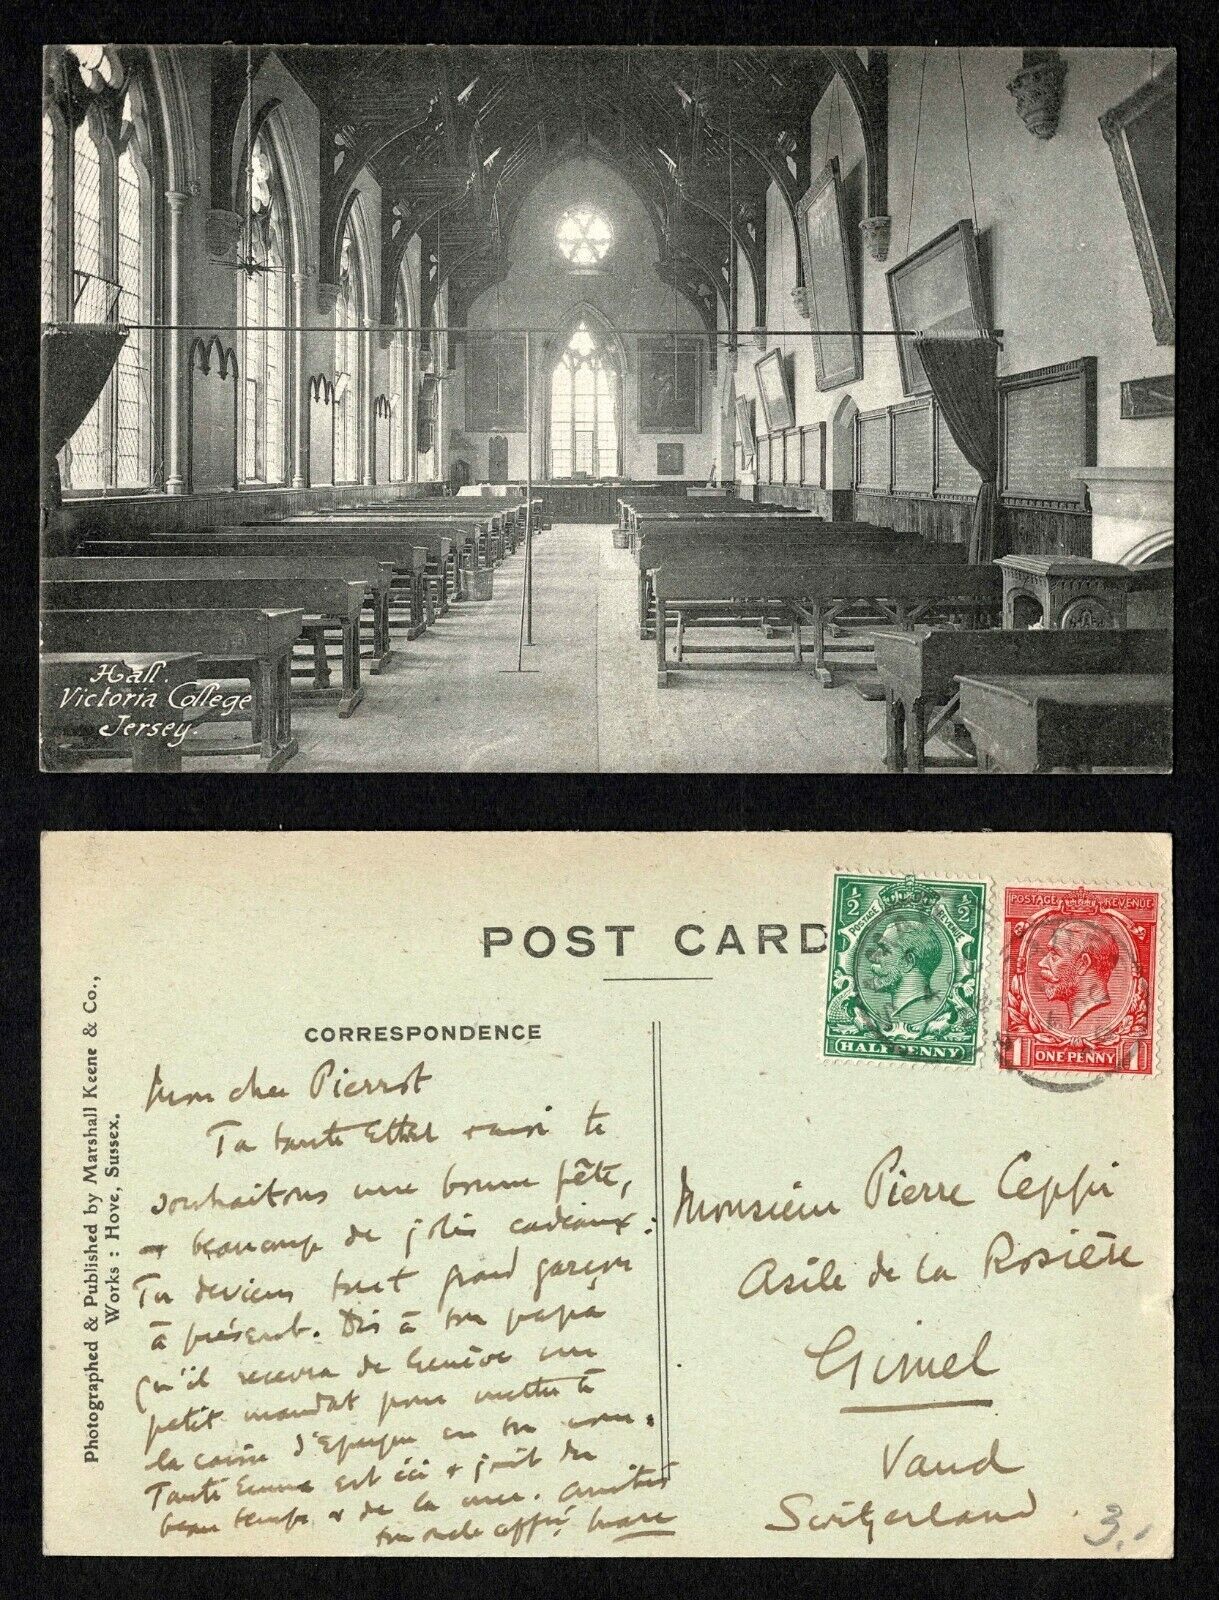 Hall.
Victoria College
Jersey.
POST CARD
CORRESPONDENCE
Photographed & Published by Marshall Keene & Co.,
Works : Hove, Sussex.
1/2 1/2
POSTAGE REVENUE
HALFPENNY
POSTAGE REVENUE
1 ONE PENNY 1
Mon cher Pierrot
Ta tante Ethel & moi te
souhaitons une bonne fête,
& beaucoup de jolis cadeaux:
Tu deviens tout grand garçon
à présent. Dis à ton papa
qu'il recevra de Genève un
petit mandat pour mettre à
la caisse d'Epargne en ton nom.
Tante Emma est ici & jouit du
beau temps & de la mer. Amitiés
ton oncle affné Marc
Monsieur Pierre Ceppi
Asile de la Rosière
Gimel
Vaud
Switzerland
3.-